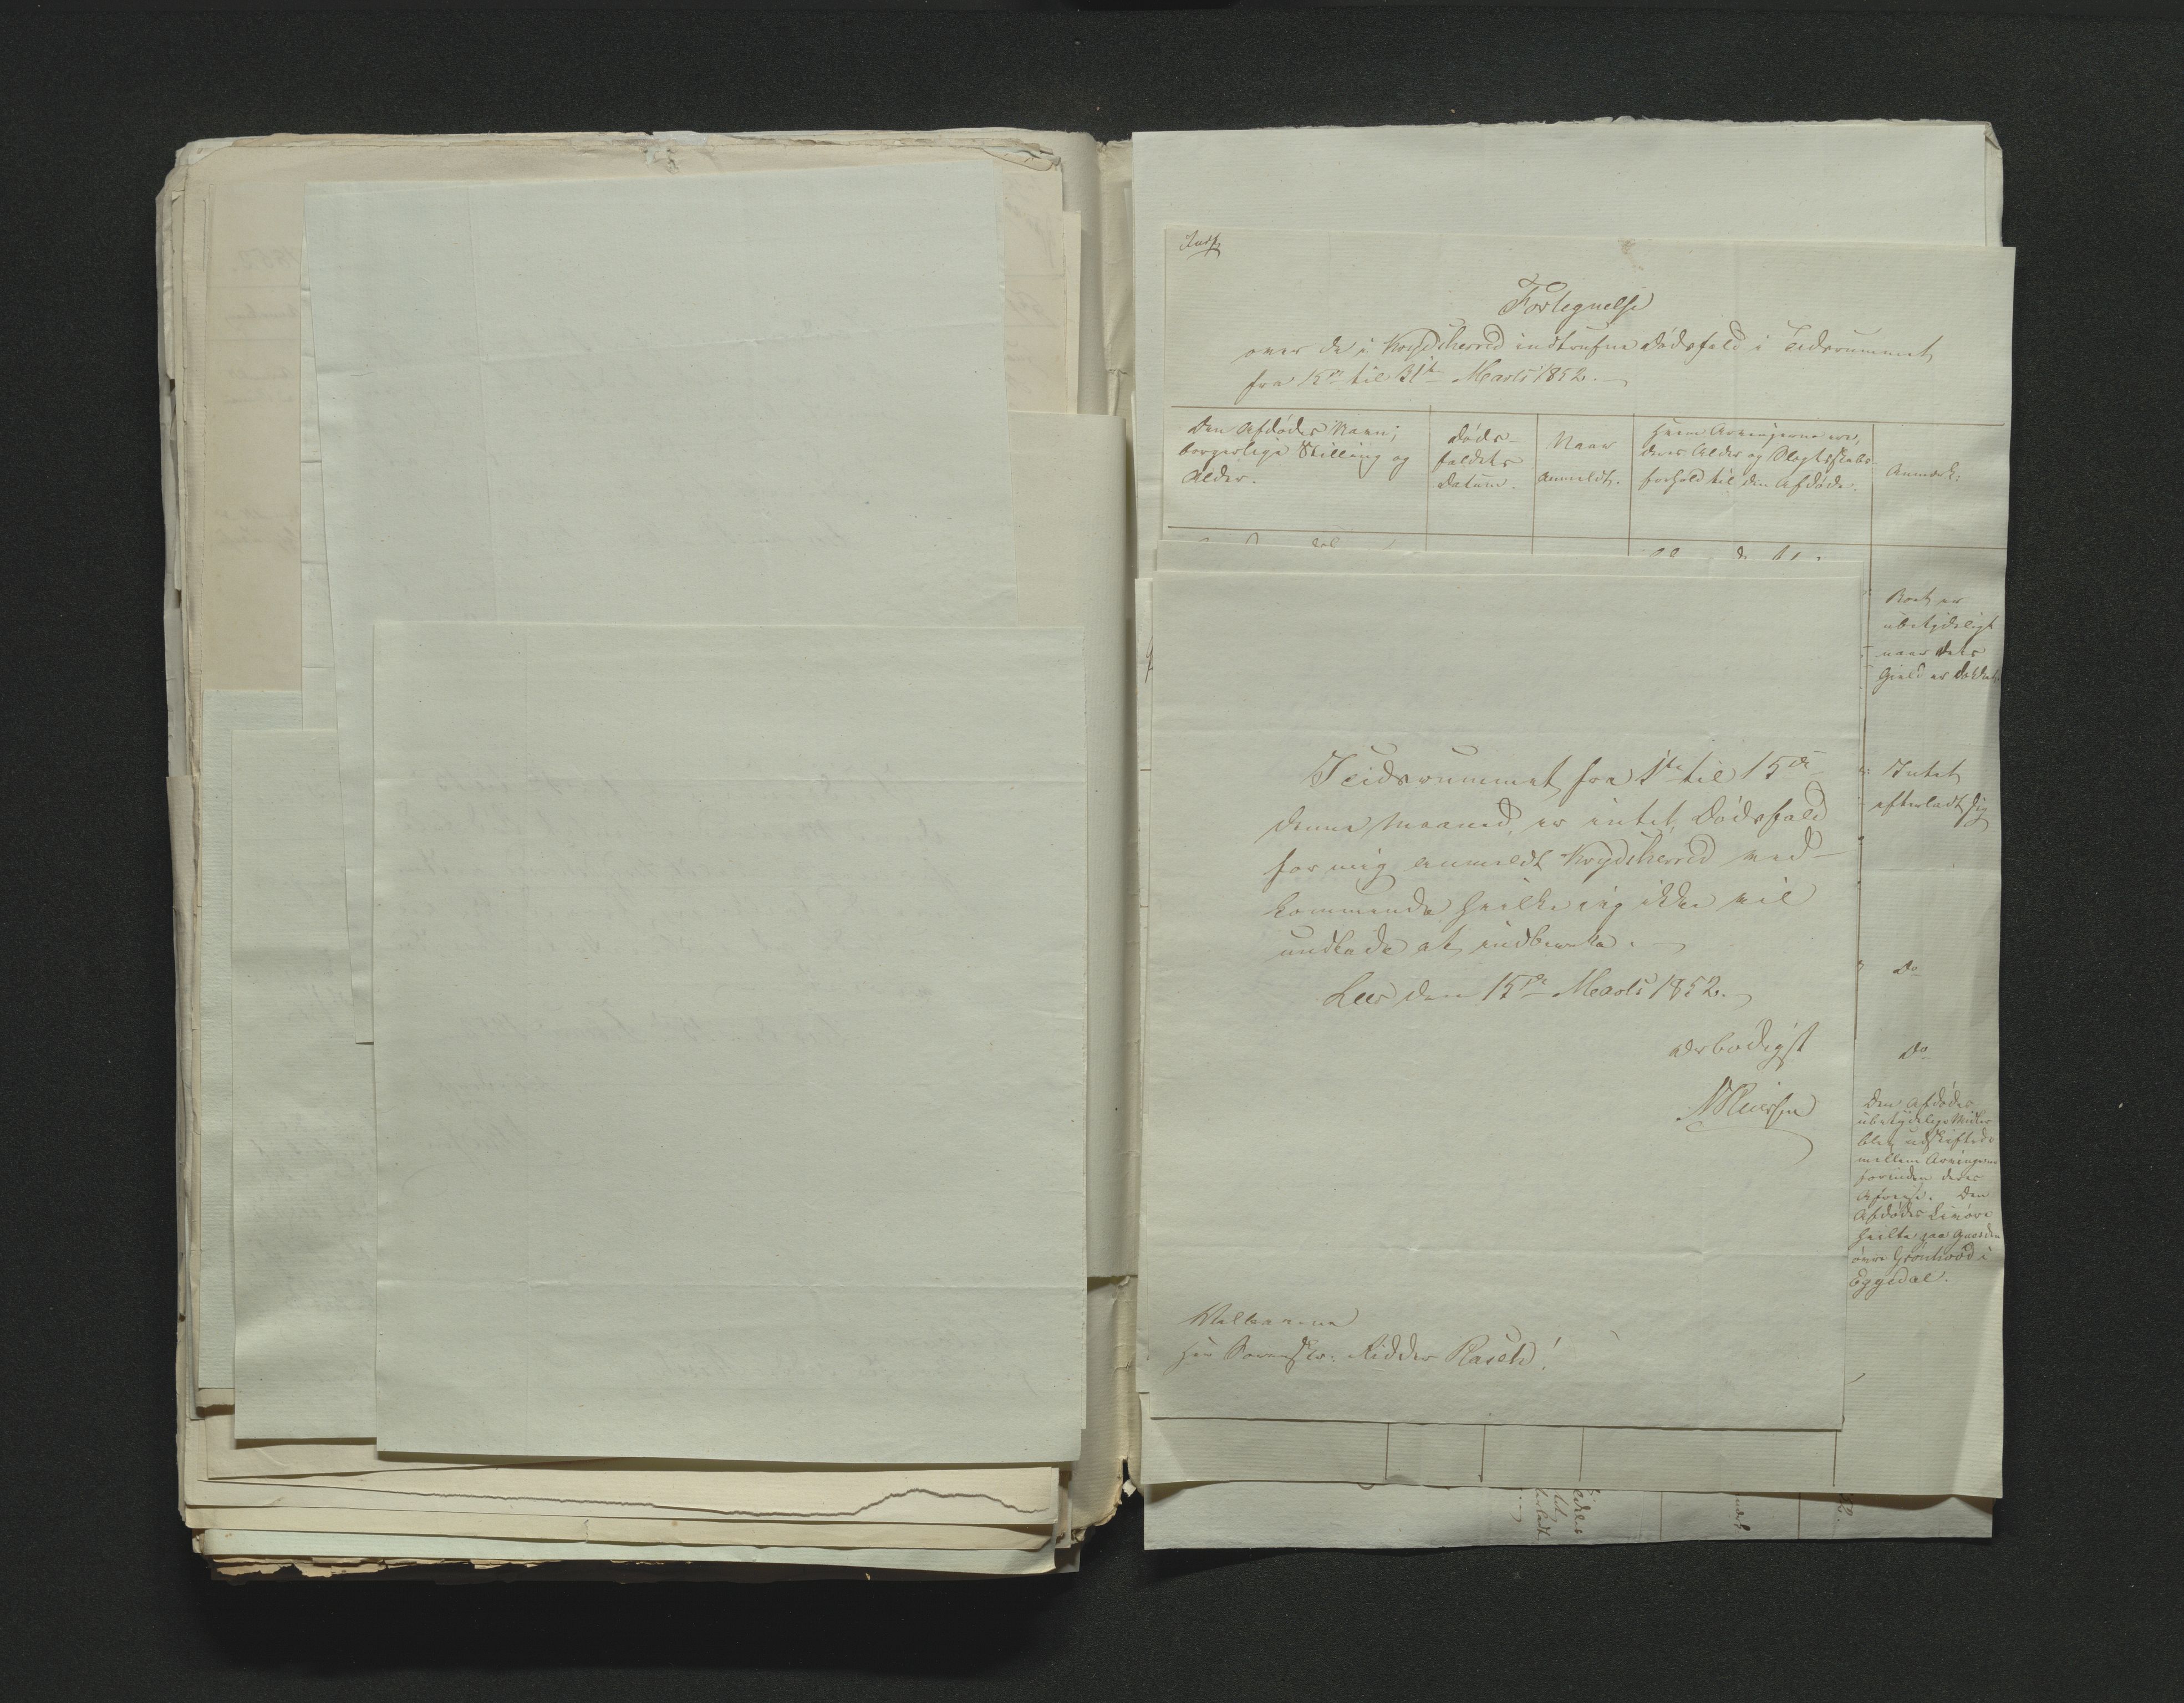 Indf.
Fortegnelse
over de i Krydsherred indtrufne Dødsfald i Tidsrummet
fra 15de til 31te Marts 1852.
Den Afdødes Navn,
borgerlige Stilling og
Alder.
Døds-
faldets
Datum.
Naar
anmeldt.
Hvem Arvingerne ere,
deres Alder og Slægtskabs
forhold til den Afdøde.
Anmærk:
Boet er
ubetydeligt
naar dets
Gjeld er
Intet
efterladt sig
Do
Do
Den Afdødes
ubetydelige Midler
blev udskiftede
mellem Arvingerne
forinden deres
Afreise. Den
Afdødes
paa Gaarden
øvre i
Eggedal.
I Tidsrummet fra 1ste til 15de
denne Maaned, er intet Dødsfald
for mig anmeldt Krydsherred ved-
kommende hvilket jeg ikke vil
undlade at indberette.
Lees den 15de Marts 1852.
ærbødigst
Velbaarne
Herr Sorenskr: Ridder Rasch!